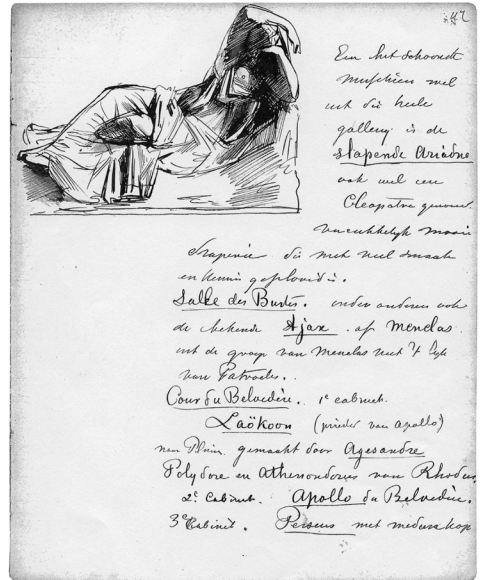 47
Een het schoonste
misschien wel
uit die heele
gallery is de
slapende Ariadne
ook wel een
Cleopatra genoemd.
verrukkelijk mooie
draperie die met veel smaak
en kennis geplooid is.
Salle des Bustes. onder anderen ook
de bekende Ajax. of Menelas
uit de groep van Menelas met 't lijk
van Patrocles..
Cour du Belvedère. 1e cabinet.
Laökoon (prieder van Apollo)
naar Plinius gemaakt door Agesandre
Polydore en Athenondores van Rhodus
2e Cabinet. Apollo du Belvedère.
3e Cabinet. Perseus met medusakop